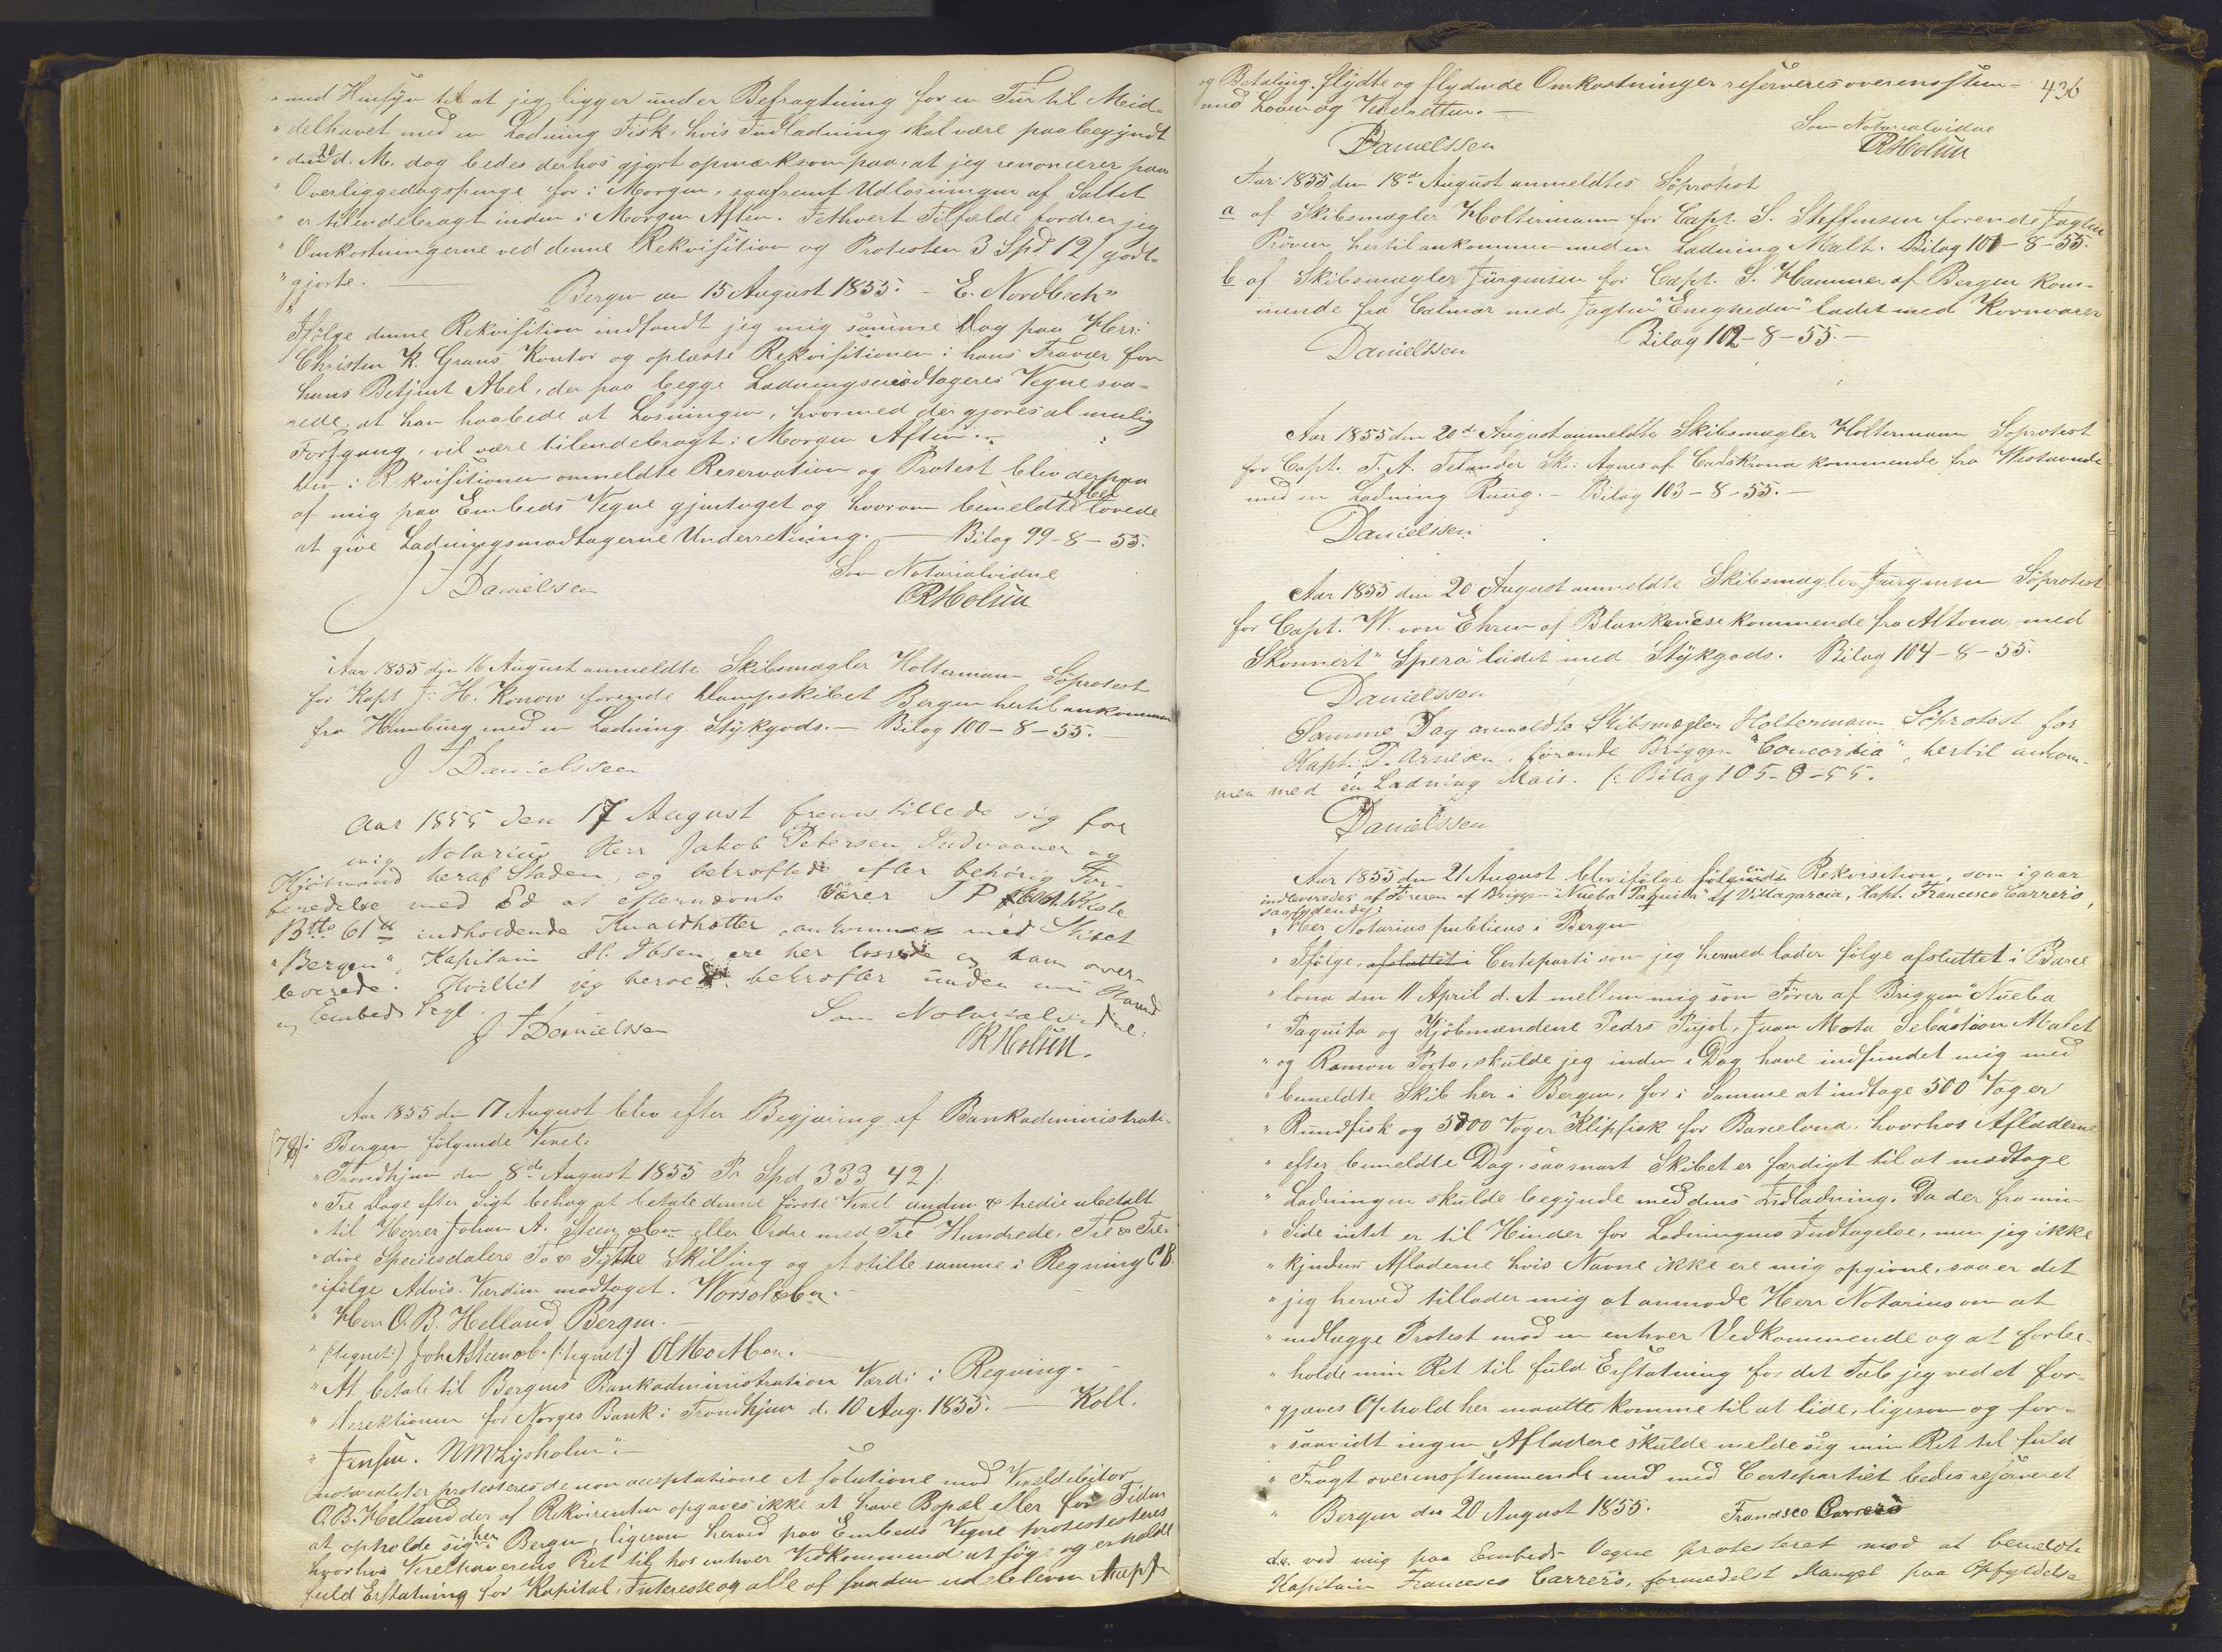 "med Hensyn til at jeg ligger under Befragtning for en Tur til Mid-
"delhavet med en Ladning Fisk, hvis Indladning skal være paabegyndt
"den 20 d. M. dag bedes derhos gjort opmærksom paa, at jeg renoncerer paa
"Overliggedagspenge for i Morgen, saafremt Udlosningen af Saltet
"er tilendebragt inden i Morgen Aften. I ethvert Tilfælde fordrer jeg
"Omkostningerne ved denne Rekvisition og Protesten 3 Spd 12/ godt-
"gjorte.
Bergen den 15 August 1855. - E. Nordbeck"
Ifölge denne Rekvisition indfandt jeg mig samme Dag paa Herr
Christen K. Grans Kontor og oplæste Rekvisitionen i hans Fravær for
hans Betjent Abel, der paa begge Ladningsmodtageres Vegne sva-
rede, at han haabede at Losningen, hvormed der gjøres al mulig
Fortgang, vil være tilendebragt i Morgen Aften.
Den i Rekvisitionen anmeldte Reservation og Protest blev derpaa
af mig paa Embeds Vegne gjentaget og hvorom bemeldte Abel lovede
at give Ladningsmodtagerne Underretning. — Bilag 99-8-55.
J Danielssen
Som Notarialvidne
CRHolsen
Aar 1855 den 16 August anmeldte Skibsmægler Holtermann Söprotest
for Kapt J: H. Konow förende Dampskibet Bergen hertil ankommen
fra Hamburg med en Ladning Stykgods. - Bilag 100-8-55.
J Danielssen
Aar 1855 den 17 August fremstillede sig for
mig Notarius Herr Jakob Petersen, Indvaaner og
Kjöbmand heraf Staden, og bekræftede efter behörig For-
beredelse med Ed at efternævnte Varer J P 1 Kiste
Btto 61 ℔ indholdende Knaldhætter, ankommen med Skibet
"Bergen", Kapitain Ibsen ere her lossede og ham over-
leverede. Hvilket jeg herved bekræfter under min Haand
og Embeds Segl.
J Danielssen
Som Notarialvidne:
CRHolsen.
Aar 1855 den 17 August blev efter Begjæring af Bankadministrati-
(79) i Bergen følgende Vexel:
"Trondhjem den 8de August 1855 Pr Spd 333, 42/
"Tre Dage efter Sigt behag at betale denne förste Vexel anden & tredie ubetalt
"til Herrer Johan A. Steen & Co eller Ordre med Tre Hundrede, Tre & Tre-
"dive Speciesdalere To & Fyrre Skilling og stille samme i Regning
"ifölge Advis. Værdien modtaget.
"Herr O. B. Helland Bergen. -
"(:tegnet:) Joh A Steen & Co. (:tegnet:)
"At betale til Bergens Bankadministration Værdi i Regning.
"Direktionen for Norges Bank i Trondhjem d. 10 Aug. 1855. — Koll.
"Jensen. Lysholm".
notarialiter protesteres de non acceptatione et solutione mod Vexeldebitor
O. B. Helland der af Rekvirenten opgaves ikke at have Bopæl eller for Tiden
at opholde sig her i Bergen, ligesom herved paa Embeds Vegne protesteres
hvorhos Vexelhaverens Ret til hos enhver Vedkommende at søge og erholde
fuld Erstatning for Kapital, Interesse og alle af saadan udebleven Accept
436
og Betaling flydte og flydende Omkostninger reserveres overensstem-
med Loven og Vexelretten. —
Danielssen
Som Notarialvidne
CRHolsen
Aar 1855 den 18de August anmeldtes Söprotest
a af Skibsmægler Holtermann for Capt. S. Steffensen førende Jagten
Pröven, hertil ankommen med en Ladning Malt. Bilag 101-8-55.
b af Skibsmægler Jürgensen for Capt. S. Hammer af Bergen kom-
mende fra Calmar med Jagten "Enigheden" ladet med Kornvarer
Danielssen
Bilag 102-8-55. -
Aar 1855 den 20de August anmeldte Skibsmægler Holtermann Söprotest
for Capt. T. A. Telander Sk: Agnes af Carlskrona kommende fra
med en Ladning Rug. - Bilag 103-8-55. -
Danielssen
Aar 1855 den 20 August anmeldte Skibsmægler Jürgensen Söprotest
for Capt. W. von Ehren af Blankenese kommende fra Altona med
Skonnert "Spera" ladet med Stykgods. Bilag 104-8-55.
Danielssen
Samme Dag anmeldte Skibsmægler Holtermann Söprotest for
Kapt: P. Arnesen, förende Briggen "Concordia", hertil ankom-
men med en Ladning Mais. Bilag 105-8-55.
Danielssen
Aar 1855 den 21 August blev ifölge følgende Rekvisition, som igaar
indleveredes af Föreren af Briggen "Nueba Paquita" af Villagarcia, Kapt. Francesco Carreró,
saalydende:
"Herr Notarius publicus i Bergen
"Ifølge, afsluttet i Certeparti som jeg hermed lader følge afsluttet i Barce
"lona den 11 April d. A mellem mig som Förer af Briggen "Nueba
"Paquita og Kjöbmændene Pedro Pujol, Juan Mota Sebastian Malet
"og Ramon Porto, skulde jeg inden i Dag have indfundet mig med
"bemeldte Skib her i Bergen, for i Samme at indtage 500 Voger
"Rundfisk og 5000 Voger Klipfisk for Barcelona, hvorhos Afladerne
"efter bemeldte Dag, saasnart Skibet er færdigt til at modtage
"Ladningen skulde begynde med dens Indladning. Da der fra min
"Side intet er til Hinder for Ladningens Indtagelse, men jeg ikke
"kjender Afladerne hvis Navne ikke ere mig opgivne, saa er det
"jeg herved tillader mig at anmode Herr Notarius om at
"nedlægge Protest mod en enhver Vedkommende og at forbe-
"holde min Ret til fuld Erstatning for det Tab jeg ved et for-
"gjæves Ophold her maatte komme til at lide, ligesom og for-
"saavidt ingen Afladere skulde melde sig min Ret til fuld
"Fragt overensstemmende med med Certepartiet bedes reserveret
"Bergen den 20 August 1855. Francesco Carreró
da. ved mig paa Embeds Vegne protesteret mod at bemeldte
Kapitain Francesco Carreró, formedelst Mangel paa Opfyldelse